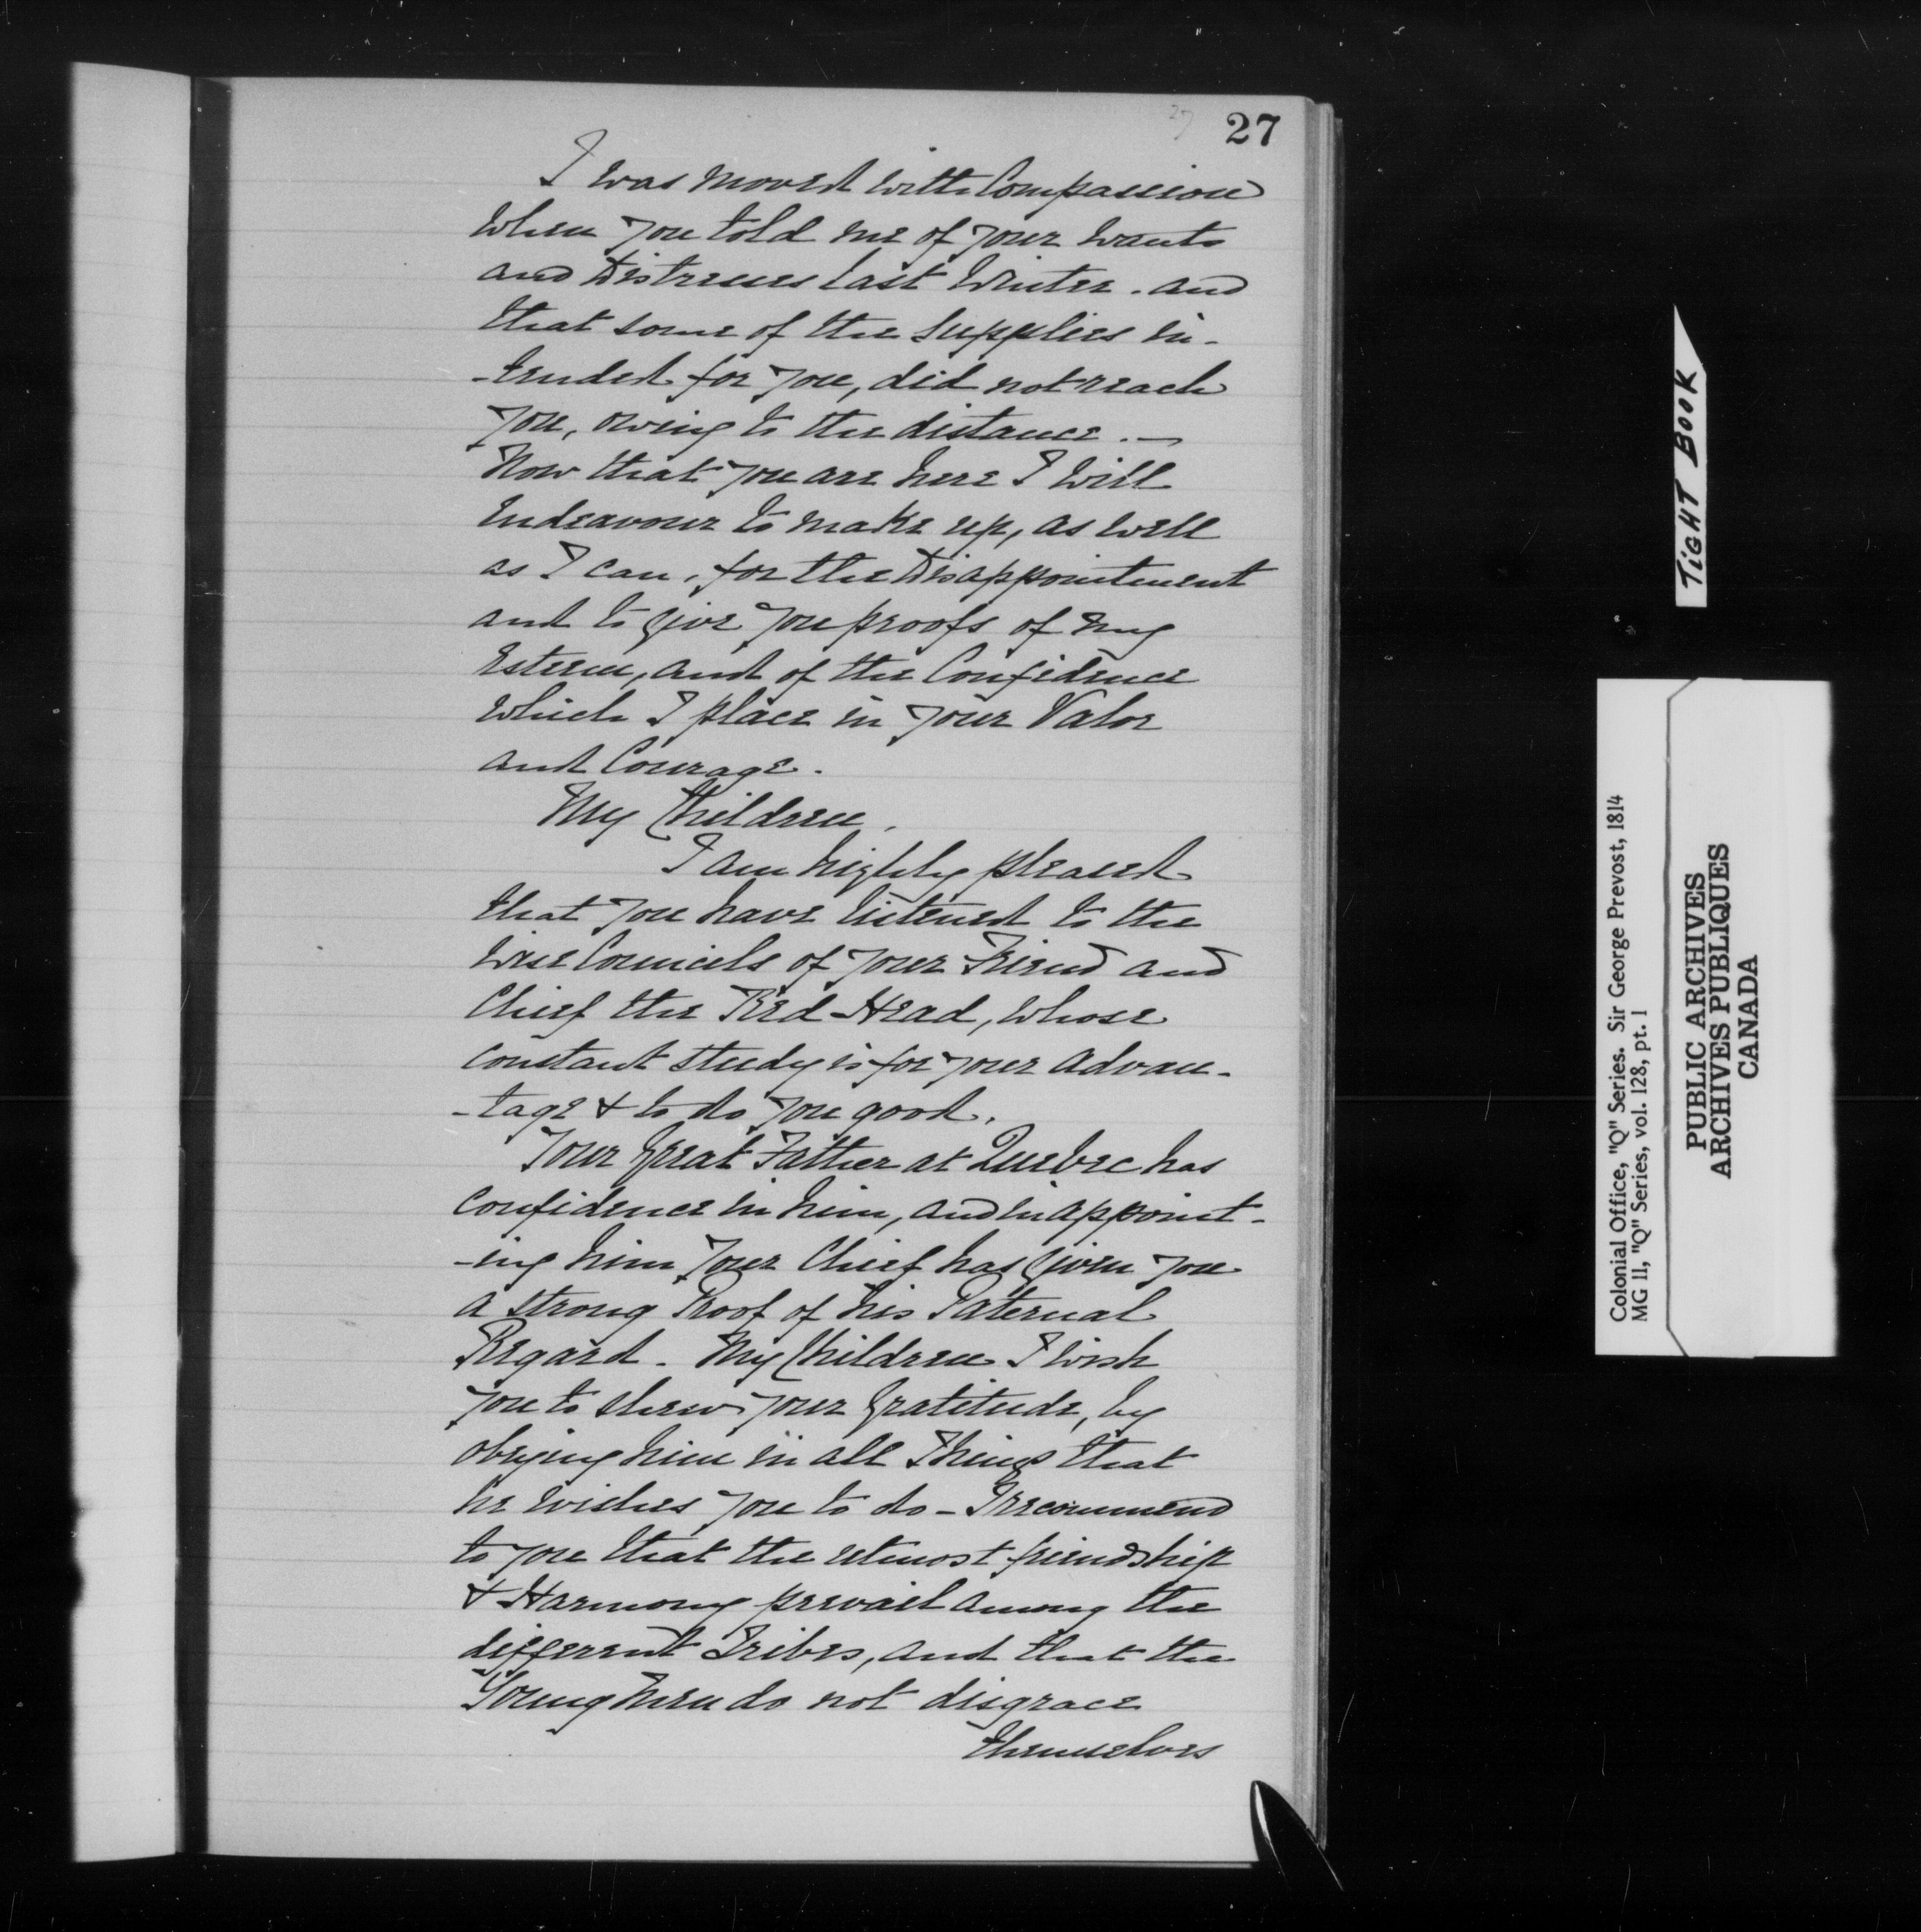 27
27
I was moved with Compassion
when you told me of your wants
and Distresses last Winter. and
that some of the supplies in-
-tended for you, did not reach
you, owing to the distance. —
Now that you are here I will
Endeavour to make up, as well
as I can, for the Disappointment
and to give you proofs of my
Esteem, and of the Confidence
which I place in your Valor
and Courage.
My Children,
I am highly pleased
that you have listened to the
wise Councils of your Friend and
Chief the Red Head, whose
constant study is for your advan-
-tage & to do you good.
Your Great Father at Quebec has
confidence in him, and in appoint-
-ing him your Chief has given you
a strong Proof of his Paternal
Regard. My Children I wish
you to shew your Gratitude, by
obeying him in all Things that
he wishes you to do - I recommend
to you that the utmost friendship
& Harmony prevail among the
different Tribes, and that the
Young Men do not disgrace
themselves
TIGHT BOOK
Colonial Office, "Q" Series. Sir George Prevost, 1814
MG 11, "Q" Series, vol. 128, pt. 1
PUBLIC ARCHIVES
ARCHIVES PUBLIQUES
CANADA